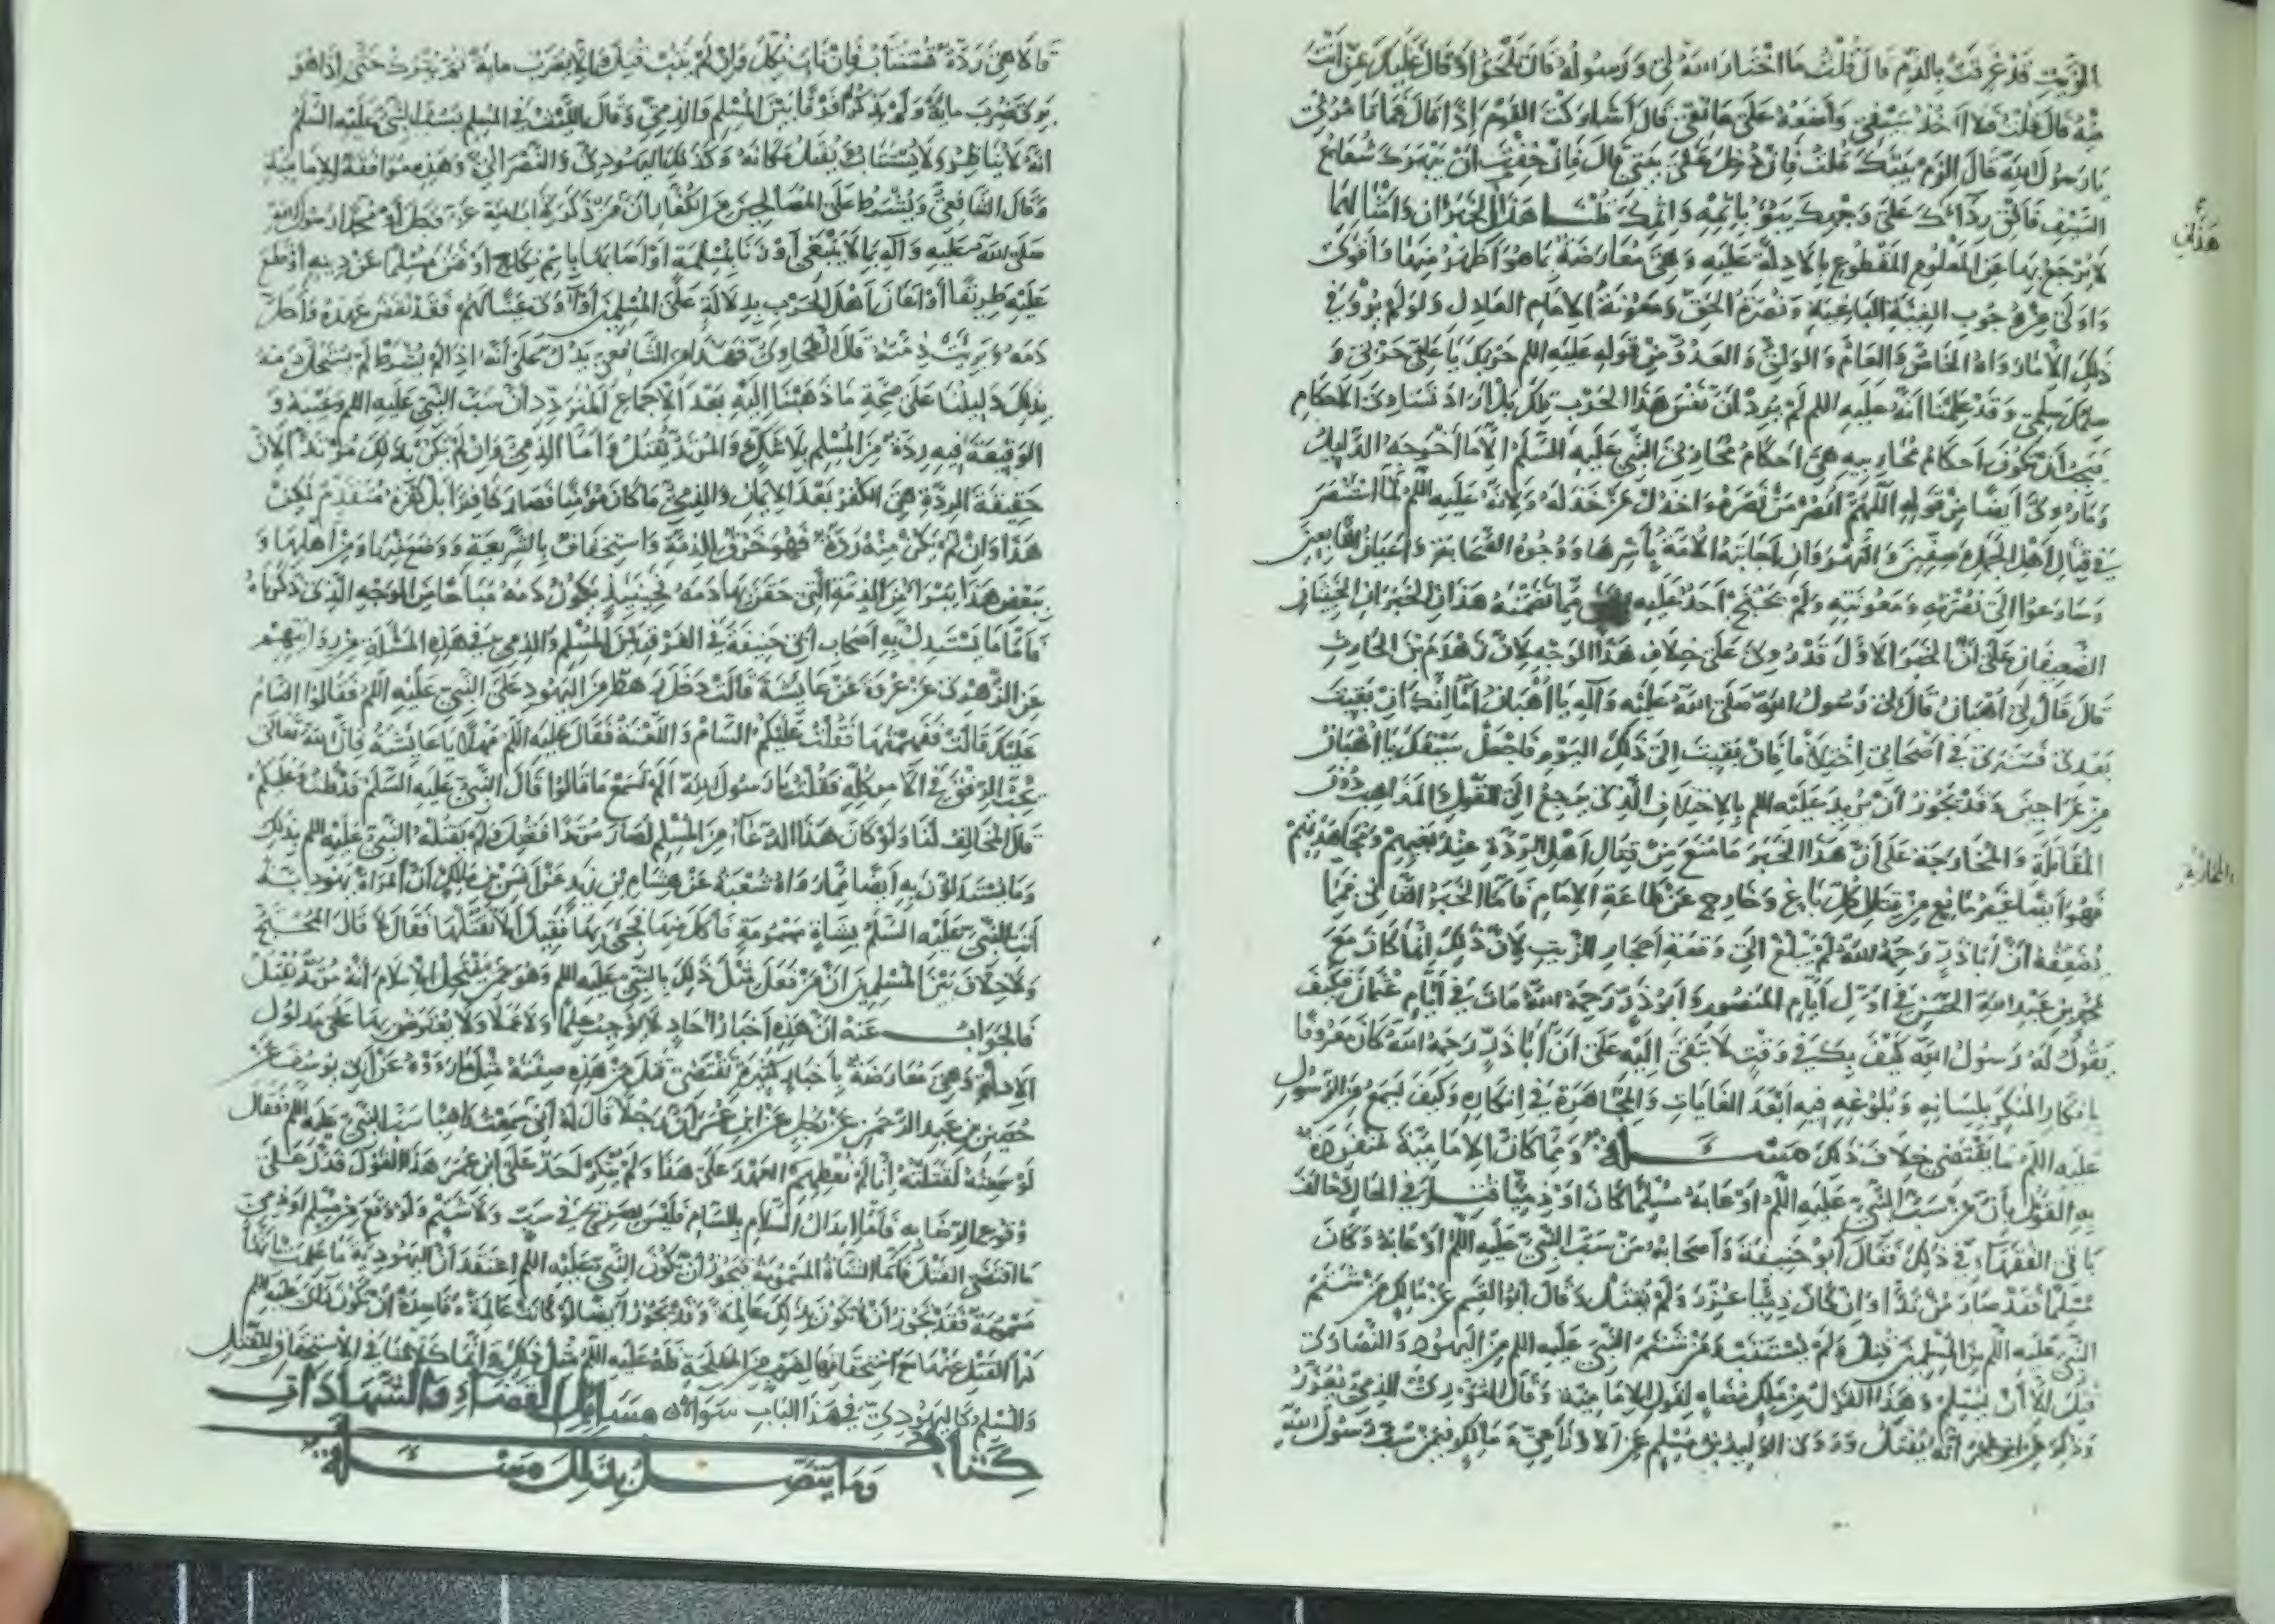 الزيت قد غرقت بالدم قال قلت ما اختار الله لي ورسوله قال تلحق او قال عليك بمن انت
منه قال قلت افلا آخذ سيفي واضعه على عاتقي قال شاركت القوم اذا قال فما تامرني
يا رسول الله قال الزم بيتك قلت فان دخل على بيتي قال فان خفت ان يبهرك شعاع
السيف فالق رداءك على وجهك يبوء باثمه واثمك قلنا هذان الخبران وامثالهما
هذان
لا يرجع بهما عن المعلوم المقطوع بالادلة عليه وهي معارضة بما هو اظهر منها واقوى
واولى من وجوب الفئة الباغية ونصرة الحق ومعونة الامام العادل ولو لم يرو في
ذلك الا ما رواه الخاص والعام والولي والعدو من قوله عليه السلم حربك يا علي حربي و
سلمك سلمي وقد علمنا انه عليه السلم لم يرد ان نفس هذا الحرب تلك بل اراد تساوي الاحكام
فيجب ان تكون احكام محاربيه هي احكام محاربي النبي عليه السلم الا ما اخرجه الدليل
وما روي ايضا من قوله اللهم انصر من نصره واخذل من خذله ولانه عليه السلم لما استنصر
في قتال اهل الجمل وصفين والنهروان اجابته الامة باسرها ووجوه الصحابة واعيان التابعين
وسارعوا الى نصرته ومعونته ولم يحتج احد عليه بشي مما تضمنه هذان الخبران الخبيثان
الضعيفان على ان الخبر الاول قد روي على خلاف هذا الوجه لان زهدم بن الحارث
قال قال لي اهبان قال لي رسول الله صلى الله عليه وآله يا اهبان اما انك ان بقيت
بعدي فسترى في اصحابي اختلافا فان بقيت الى ذلك اليوم فاجعل سيفك يا اهبان
من عراجين وقد يجوز ان يريد عليه السلم بالاختلاف الذي يرجع الى القول والمذاهب دون
المقاتلة والمحاربة على ان هذا الخبر ما منع من قتال اهل الردة عند بغيهم ومجاهدتهم
المحاربة
فهو ايضا غير مانع من قتال كل باغ وخارج عن طاعة الامام فاما الخبر الثاني فمما
يضعفه ان ابا ذر رحمه الله لم يبلغ الى وقعة احجار الزيت لان ذلك انما كان مع
محمد بن عبد الله الحسن في اول ايام المنصور وابو ذر رحمه الله مات في ايام عثمان فكيف
يقول له رسول الله كيف بك في وقت لا يبقى اليه على ان ابا ذر رحمه الله كان معروفا
بانكار المنكر بلسانه وبلوغه فيه ابعد الغايات والمجاهرة في انكاره وكيف يسمع من الرسول
عليه السلم ما يقتضي خلاف ذلك مسئلة ومما كان الامامية منفردة
به القول بان من سب النبي عليه السلم او عابه مسلما كان او ذميا قتل في الحال وخالف
باقي الفقهاء في ذلك فقال ابو حنيفة واصحابه من سب النبي عليه السلم او عابه وكان
مسلما فقد صار مرتدا وان كان ذميا عزر ولم يقتل وقال ابو القسم عن مالك من شتم
النبي عليه السلم من المسلمين قتل ولم يستتب ومن شتم النبي عليه السلم من اليهود والنصارى
قتل الا ان يسلم وهذا القول من ملك مضاه لقول الامامية وقال الثوري الذمي يعزر
وذكر عن ابن عمر انه يقتل وروى الوليد بن مسلم عن الاوزاعي ومالك فيمن سب رسول الله
قالا هي ردة يستتاب فان تاب نكل وان لم يتب قتل قالا يضرب ماية ثم يترك حتى اذا هو
برئ ضرب ماية ولم يذكرا فرقا بين المسلم والذمي وقال الليث في المسلم يسب النبي عليه السلم
انه لا يناظر ولا يستتاب يقتل مكانه وكذلك اليهودي والنصراني وهذه موافقة للامامية
وقال الشافعي ويشترط على المصالحين من الكفار ان من ذكر كتاب الله عز وجل او محمدا رسول الله
صلى الله عليه وآله بما لا ينبغي او زنا بمسلمة او اصابها باسم نكاح او فتن مسلما عن دينه او قطع
عليه طريقا او اعان اهل الحرب بدلالة على المسلمين او آوى عينا لهم فقد نقض عهده واحل
دمه وبرئت ذمته قال الطحاوي فهذا من الشافعي يدل على انه اذا لم يشترط لم يستحل دمه
بذلك دليلنا على صحة ما ذهبنا اليه بعد الاجماع المتردد ان سب النبي عليه السلم وعيبه و
الوقيعة فيه ردة من المسلم بلا شك والمرتد يقتل واما الذمي وان لم يكن بذلك مرتدا لان
حقيقة الردة هي الكفر بعد الايمان والذمي ما كان مؤمنا فصار كافرا بل كفره متقدم لكن
هذا وان لم يكن منه ردة فهو خرق للذمة واستخفاف بالشريعة ووضع منها ومن اهلها و
ببعض هذا يبرأ من الذمة التي حقن بها دمه فحينئذ يكون دمه مباحا من الوجه الذي ذكرناه
فاما ما يستدل به اصحاب ابي حنيفة في الفرق بين المسلم والذمي في هذه المسئلة من روايتهم
عن الزهري عن عروة عن عايشة قالت دخل رهط من اليهود على النبي عليه السلم فقالوا السام
عليك قالت ففهمتها فقلت عليكم السام واللعنة فقال عليه السلم مهلا يا عايشة فان الله تعالى
يحب الرفق في الامر كله فقلت يا رسول الله الم تسمع ما قالوا قال النبي عليه السلم قد قلت وعليكم
قال المخالف لنا ولو كان هذا الدعاء من المسلم لصار مرتدا فقتل ولم يقتله النبي عليه السلم بذلك
وما يستدلون به ايضا مما رواه شعبة عن هشام بن زيد عن انس بن مالك ان امراة يهودية
اتت النبي عليه السلم بشاة مسمومة فاكل منها فجيء بها فقيل الا تقتلها فقال لا قال المحتج
ولا خلاف بين المسلمين ان من فعل مثل ذلك بالنبي عليه السلم وهو ممن ينتحل الاسلام انه مرتد يقتل
فالجواب عنه ان هذه اخبار آحاد لا توجب علما ولا عملا ولا يعترض بها على مدلول
الادلة وهي معارضة باخبار كثيرة تقتضي قتل من هذه صفته مثل ما رووه عن ابي يوسف عن
حصين بن عبد الرحمن عن رجل عن ابن عمر ان رجلا قال له اني سمعت راهبا سب النبي عليه السلم فقال
لو سمعته لقتلته انا لم نعطهم العهد على هذا ولم ينكر احد على ابن عمر هذا القول فدل على
وقوع الرضا به فاما ابدال السلام بالسام فليس بصريح في سب ولا شتم ولو وقع من مسلم او ذمي
ما اقتضى القتل فاما الشاة المسمومة فيجوز ان يكون النبي عليه السلم اعتقد ان اليهودية ما علمت بانها
مسمومة فقد يجوز ان لا تكون بذلك عالمة وقد يجوز ايضا لو كانت عالمة وقاصدة ان يكون رأى عليه السلم
درأ القتل عنها مع استحقاقها لضرب من المصلحة فله عليه السلم مثل ذلك وانما كلامنا في الاستحقاق للقتل
والمسلم كاليهودي في هذا الباب سواء مسايل القضاء والشهادات
كتاب
وما يتصل بذلك مسئلة